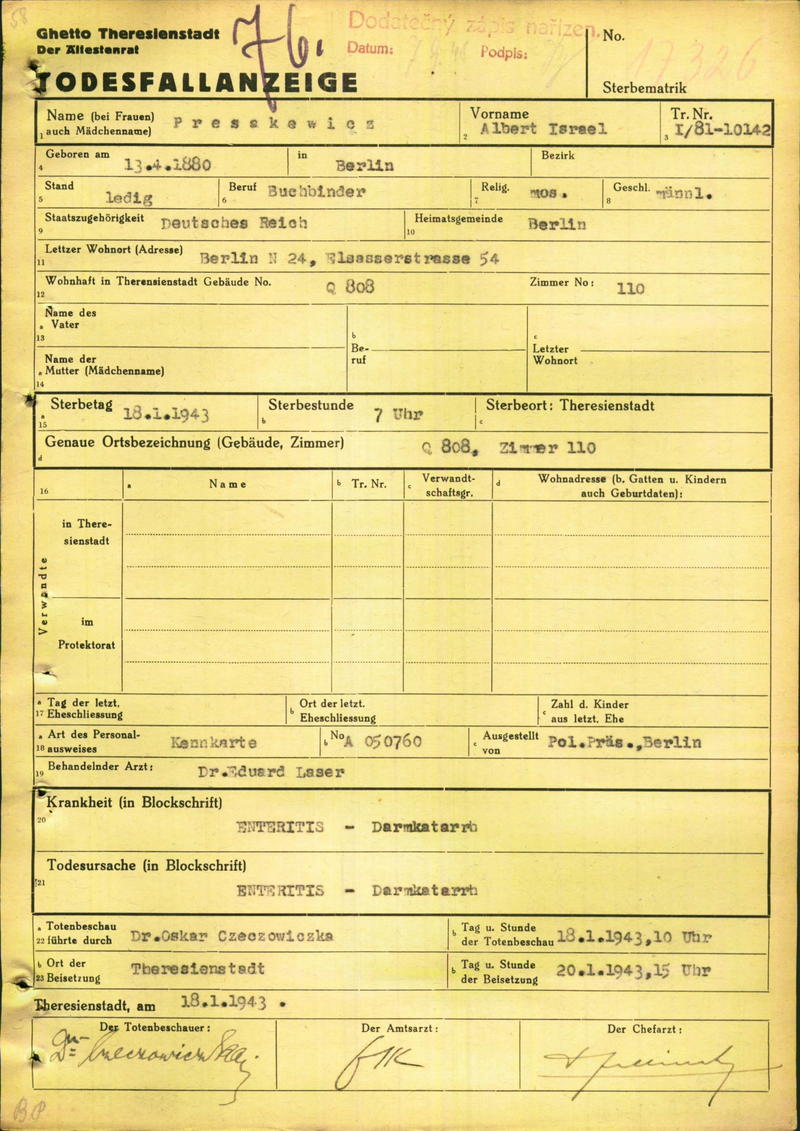 58
Ghetto Theresienstadt
Der Ältestenrat
TODESFALLANZEIGE
Dodatečný zápis nařízen.
Datum: Podpis:
No. 17326
Sterbematrik
Name (bei Frauen) auch Mädchenname) Presskewicz
1
Vorname Albert Israel
2
Tr. Nr. I/81-10142
3
Geboren am 13.4.1880 in Berlin Bezirk
4
Stand ledig Beruf Buchbinder Relig. mos. Geschl. männl.
5 6 7 8
Staatszugehörigkeit Deutsches Reich Heimatsgemeinde Berlin
9 10
Lettzer Wohnort (Adresse) Berlin N 24, Elsasserstrasse 54
11
Wohnhaft in Theresienstadt Gebäude No. Q 808 Zimmer No: 110
12
Name des
a Vater
13
b Be-
ruf
c Letzter
Wohnort
Name der
a Mutter (Mädchenname)
14
Sterbetag 18.1.1943 Sterbestunde 7 Uhr Sterbeort: Theresienstadt
a 15 b c
Genaue Ortsbezeichnung (Gebäude, Zimmer) Q 808, Zimmer 110
d
16 a Name b Tr. Nr. c Verwandt-
schaftsgr. d Wohnadresse (b. Gatten u. Kindern
auch Geburtdaten):
Verwandte
in There-
sienstadt
im
Protektorat
a Tag der letzt.
17 Eheschliessung
b Ort der letzt.
Eheschliessung
c Zahl d. Kinder
aus letzt. Ehe
a Art des Personal-
18 ausweises Kennkarte b No A 050760 c Ausgestellt
von Pol.Präs.,Berlin
Behandelnder Arzt: Dr.Eduard Laser
19
Krankheit (in Blockschrift)
20
ENTERITIS - Darmkatarrh
Todesursache (in Blockschrift)
21
ENTERITIS - Darmkatarrh
a Totenbeschau
22 führte durch Dr.Oskar Czeczowiczka b Tag u. Stunde
der Totenbeschau 18.1.1943,10 Uhr
b Ort der
23 Beisetzung Theresienstadt b Tag u. Stunde
der Beisetzung 20.1.1943,15 Uhr
Theresienstadt, am 18.1.1943 .
Der Totenbeschauer: Der Amtsarzt: Der Chefarzt:
Dr Czeczowiczka